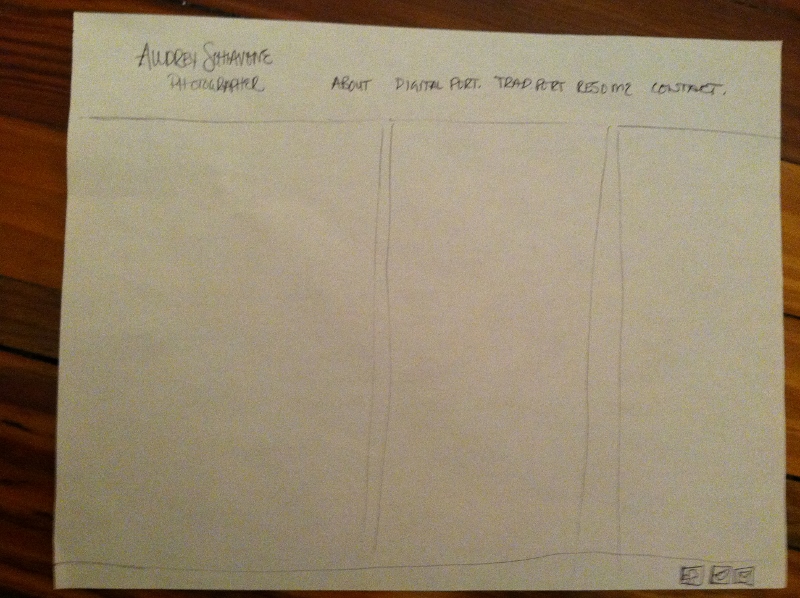 AUDREY SCHIAVONE
PHOTOGRAPHER
ABOUT DIGITAL PORT. TRAD. PORT RESUME CONTACT.